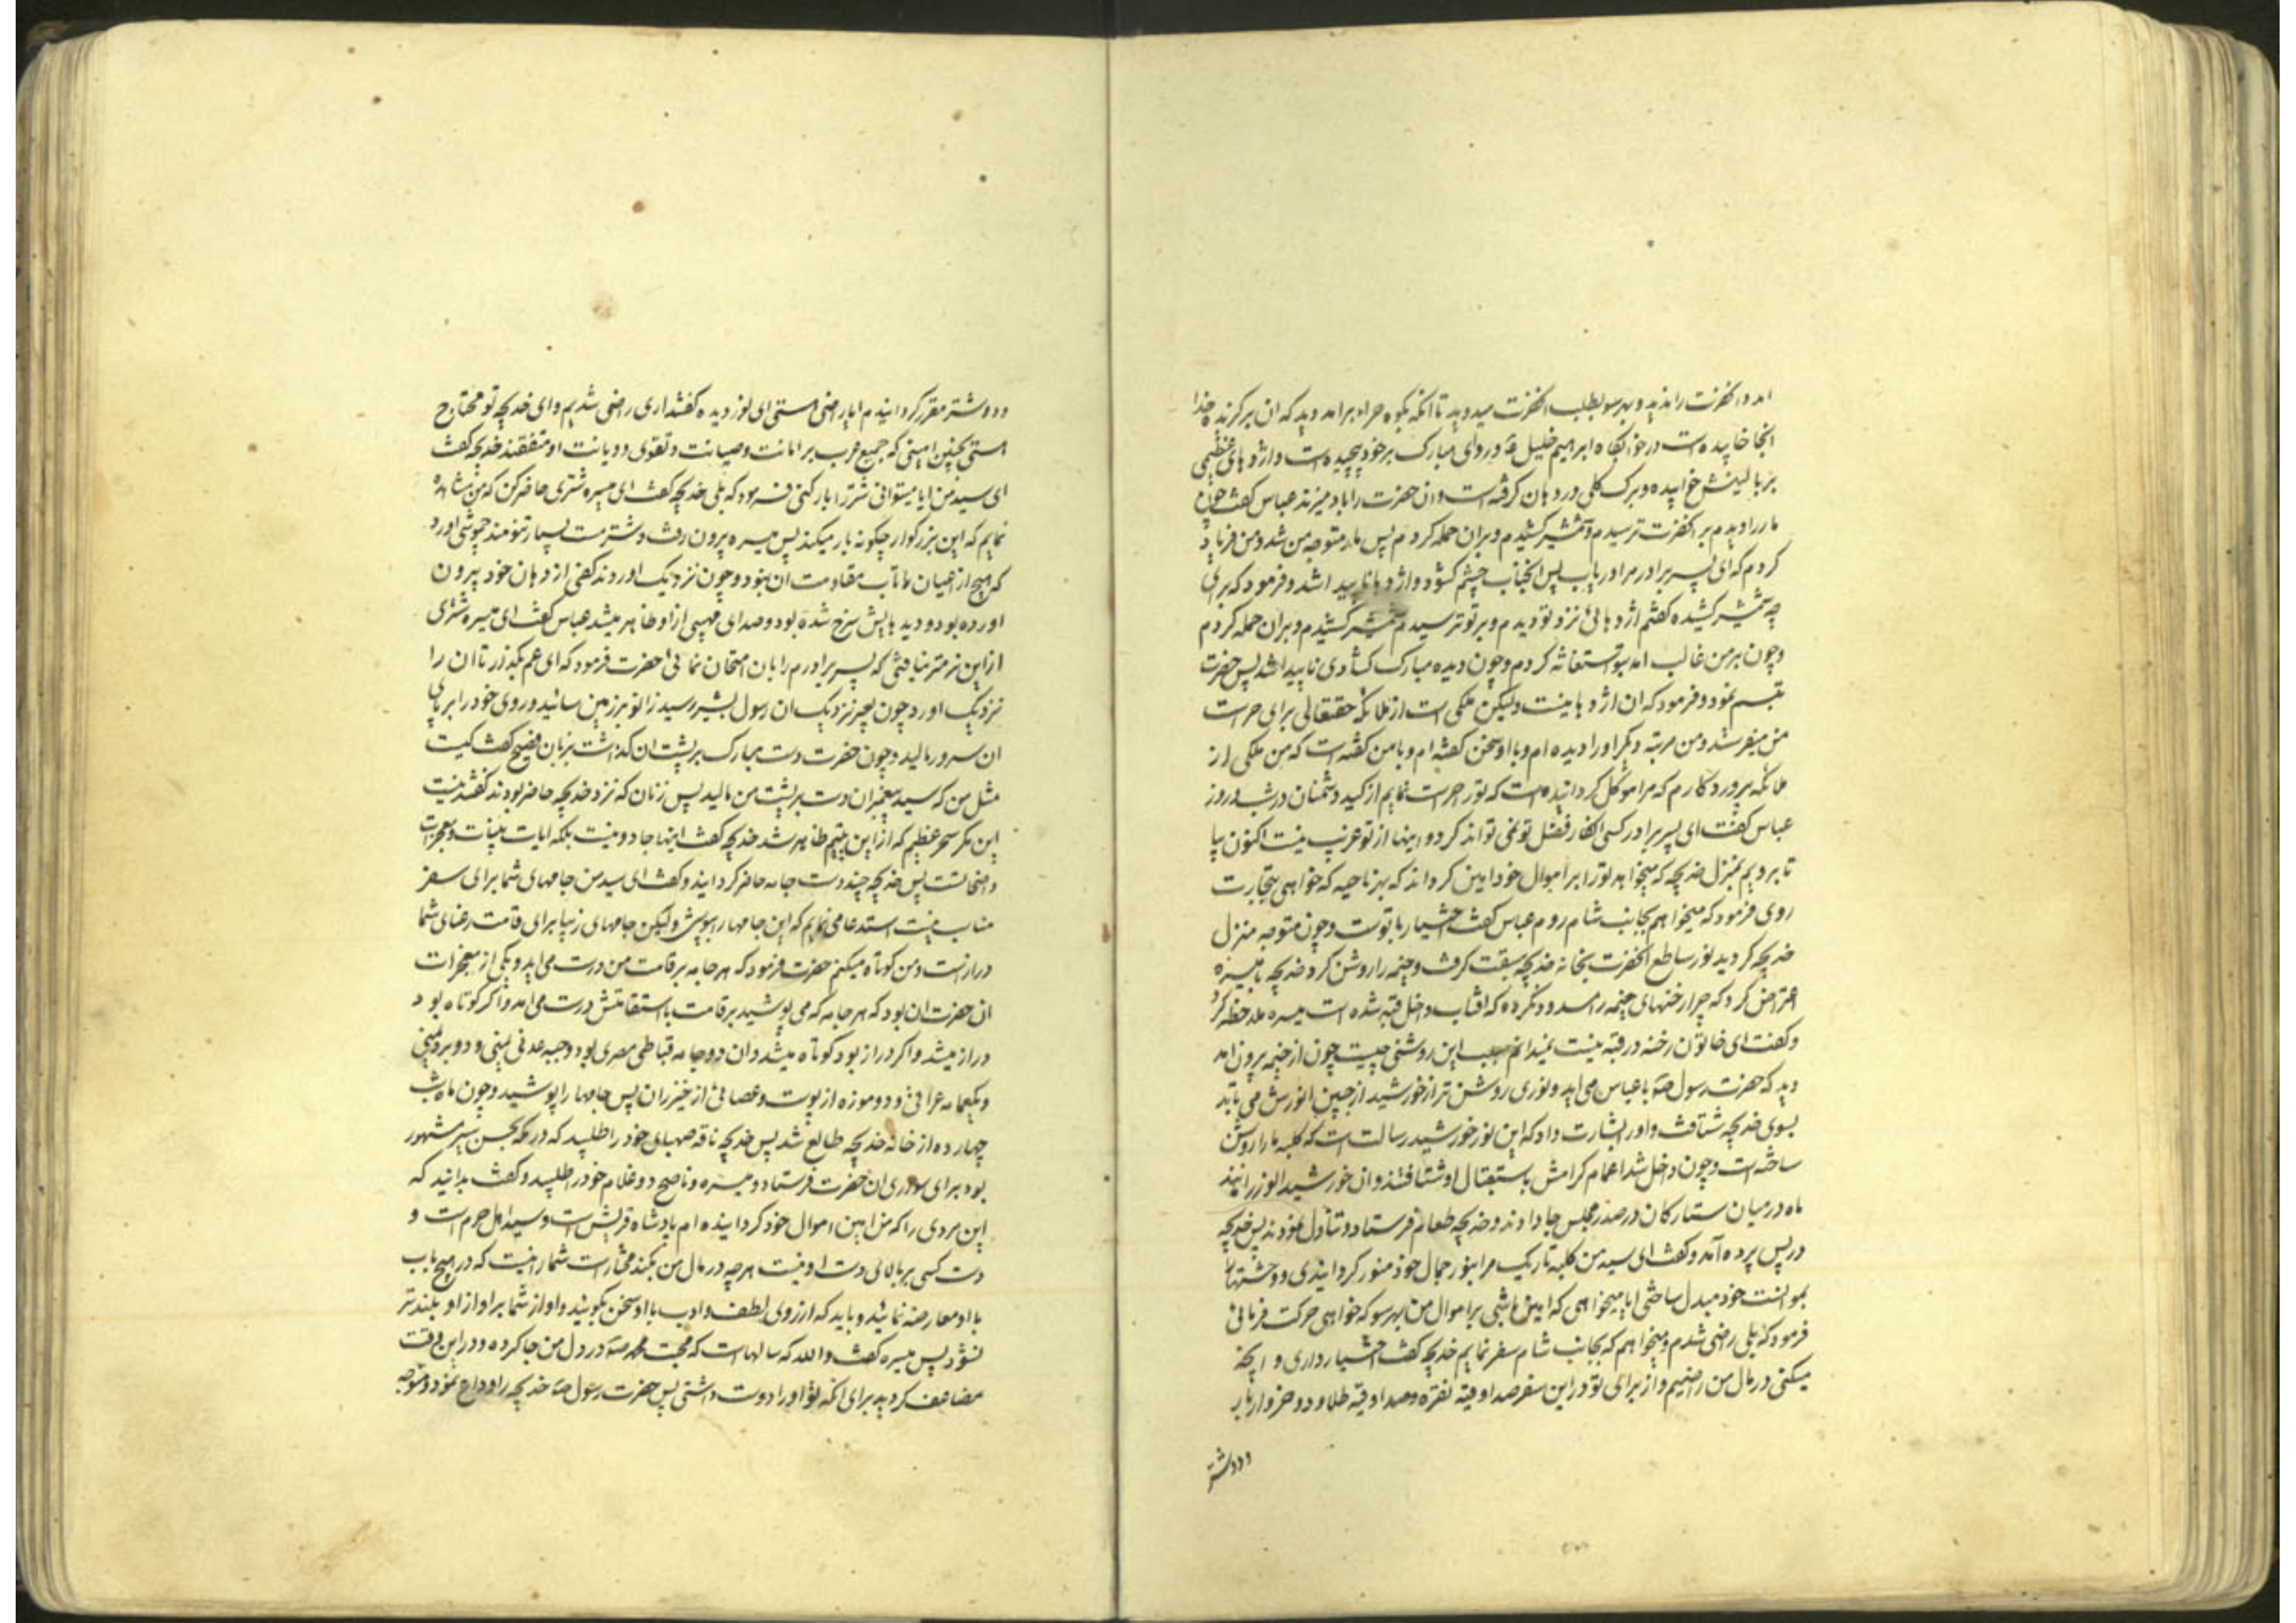 امد و انحضرت را ندید و بهر سو بطلب انحضرت میدوید تا انکه بکوه حرا برامد دید که ان برکزیده خدا
انجا خابیده است در خوابکاه ابراهیم خلیل و ردای مبارک بر خود پیچیده است و اژدهای عظیمی
بر بالینش خوابیده و برک کلی در دهان کرفته است و ان حضرت را باد میزند عباس کفت چون
مار را دیدم بر انحضرت ترسیدم و شمشیر کشیدم و بران حمله کردم پس مار متوجه من شد و من فریاد
کردم که ای پسر برادر مرا دریاب پس انجناب چشم کشود و اژدها ناپیدا شد و فرمود که برای
چه شمشیر کشیده کفتم اژدهائی نزد تو دیدم و بر تو ترسیدم شمشیر کشیدم و بران حمله کردم
و چون بر من غالب امد بتو استغاثه کردم و چون دیده مبارک کشادی ناپیدا شد پس حضرت
تبسم نمود و فرمود که ان اژدها نیست ولیکن ملکی است از ملائکه حقتعالی برای حراست
من میفرستد و من مرتبه دیکر او را دیده ام و با او سخن کفته ام و با من کفته است که من ملکی از
ملائکه پروردکارم که مرا موکل کردانیده است که تو را حراست نمایم از کید دشمنان در شب و روز
عباس کفت ای پسر برادر کسی انکار فضل تو نمی تواند کرد و اینها از تو غریب نیست اکنون بیا
تا برویم بمنزل خدیجه که میخواهد تو را بر اموال خود امین کرداند که بهر ناحیه که خواهی بتجارت
روی فرمود که میخواهم بجانب شام روم عباس کفت اختیار با توست و چون متوجه منزل
خدیجه کردید نور ساطع انحضرت بخانه خدیجه سبقت کرفت و خیمه را روشن کرد خدیجه با میسره
اعتراض کرد که چرا رخنهای خیمه را مسدود نکرده که افتاب داخل قبه شده است میسره ملاحظه کرد
و کفت ای خاتون رخنه در قبه نیست نمیدانم سبب این روشنی چیست چون از خیمه برون امد
دید که حضرت رسول ص با عباس می اید و نوری روشن تر از خورشید از جبین انورش می تابد
بسوی خدیجه شتافت و او را بشارت داد که این نور خورشید رسالت است که کلبه ما را روشن
ساخته است و چون داخل شد اعمام کرامش باستقبال او شتافتند و ان خورشید انور را مانند
ماه در میان ستارکان در صدر مجلس جا دادند و خدیجه طعام فرستاد و تناول نمودند پس خدیجه
در پس پرده آمد و کفت ای سید من کلبه تاریک مرا بنور جمال خود منور کردانیدی و وحشتها
بموانست خود مبدل ساختی ایا میخواهی که امین باشی بر اموال من بهر سو که خواهی حرکت فرمائی
فرمود که بلی راضی شدم و میخواهم که بجانب شام سفر نمایم خدیجه کفت اختیار داری و انچه
میکنی در مال من راضیم و از برای تو در این سفر صد اوقیه نقره و صد اوقیه طلا و دو خروار بار
و دو شتر
و دو شتر مقرر کردانیدم ایا راضی هستی ای نور دیده کفتند اری راضی شدیم و ای خدیجه تو محتاج
هستی بچنین امینی که جمیع عرب بر امانت و صیانت و تقوی و دیانت او متفقند خدیجه کفت
ای سید من ایا میتوانی شتر را بار کنی فرمود که بلی خدیجه کفت ای میسره شتری حاضر کن که من مشاهده
نمایم که این بزرکوار چکونه بار میکند پس میسره برون رفت و شتر مست بسیار تنومند چموشی اورد
که هیچ از راعیان ما تاب مقاومت ان نبود و چون نزدیک اوردند کفی از دهان خود بیرون
اورده بود و دیدهایش سرخ شده بود و صدای مهیبی از او ظاهر میشد عباس کفت ای میسره شتری
از این نرمتر نیافتی که پسر برادرم را بان امتحان نمائی حضرت فرمود که ای عم بکذار تا ان را
نزدیک اورد چون بعیر نزدیک ان رسول بشیر رسید زانو بر زمین سائید و روی خود را بر پای
ان سرور مالید و چون حضرت دست مبارک بر پشت ان کذاشت بزبان فصیح کفت کیست
مثل من که سید پیغمبران دست بر پشت من مالید پس زنان که نزد خدیجه حاضر بودند کفتند نیست
این مکر سحر عظیم که از این یتیم ظاهر شد خدیجه کفت اینها جادو نیست بلکه ایات بینات و معجزات
واضحاتست پس خدیجه چند دست جامه حاضر کردانید و کفت ای سید من جامهای شما برای سفر
مناسب نیست استدعا می نمایم که این جامها را بپوشی ولیکن جامهای زیبا برای قامت رعنای شما
درازست و من کوتاه میکنم حضرت فرمود که هر جامه بر قامت من درست می اید و یکی از معجزات
ان حضرت ان بود که هر جامه که می پوشید بر قامت با استقامتش درست می امد و اکر کوتاه بود
دراز میشد و اکر دراز بود کوتاه میشد و ان دو جامه قباطی مصری بود و جبه عدنی یمنی و دو برد یمنی
و یکعمامه عراقی و دو موزه از پوست و عصائی از خیزران پس جامها را پوشید و چون ماه شب
چهارده از خانه خدیجه طالع شد پس خدیجه ناقه صهبای خود را طلبید که در مکه بحسن سیر مشهور
بود برای سواری ان حضرت فرستاد و میسره و ناصح دو غلام خود را طلبید و کفت بدانید که
این مردی را که من امین اموال خود کردانیده ام پادشاه قریش است و سید اهل حرم است و
دست کسی بر بالای دست او نیست هر چه در مال من بکند مختار است شما را نیست که در هیچ باب
با او معارضه نمائید و باید که از روی لطف و ادب با او سخن بکوئید و اواز شما بر اواز او بلندتر
نشود پس میسره کفت والله که سالهاست که محبت محمد ص در دل من جا کرده و در این وقت
مضاعف کردید برای انکه تو او را دوست داشتی پس حضرت رسول ص خدیجه را وداع نمود و متوجه